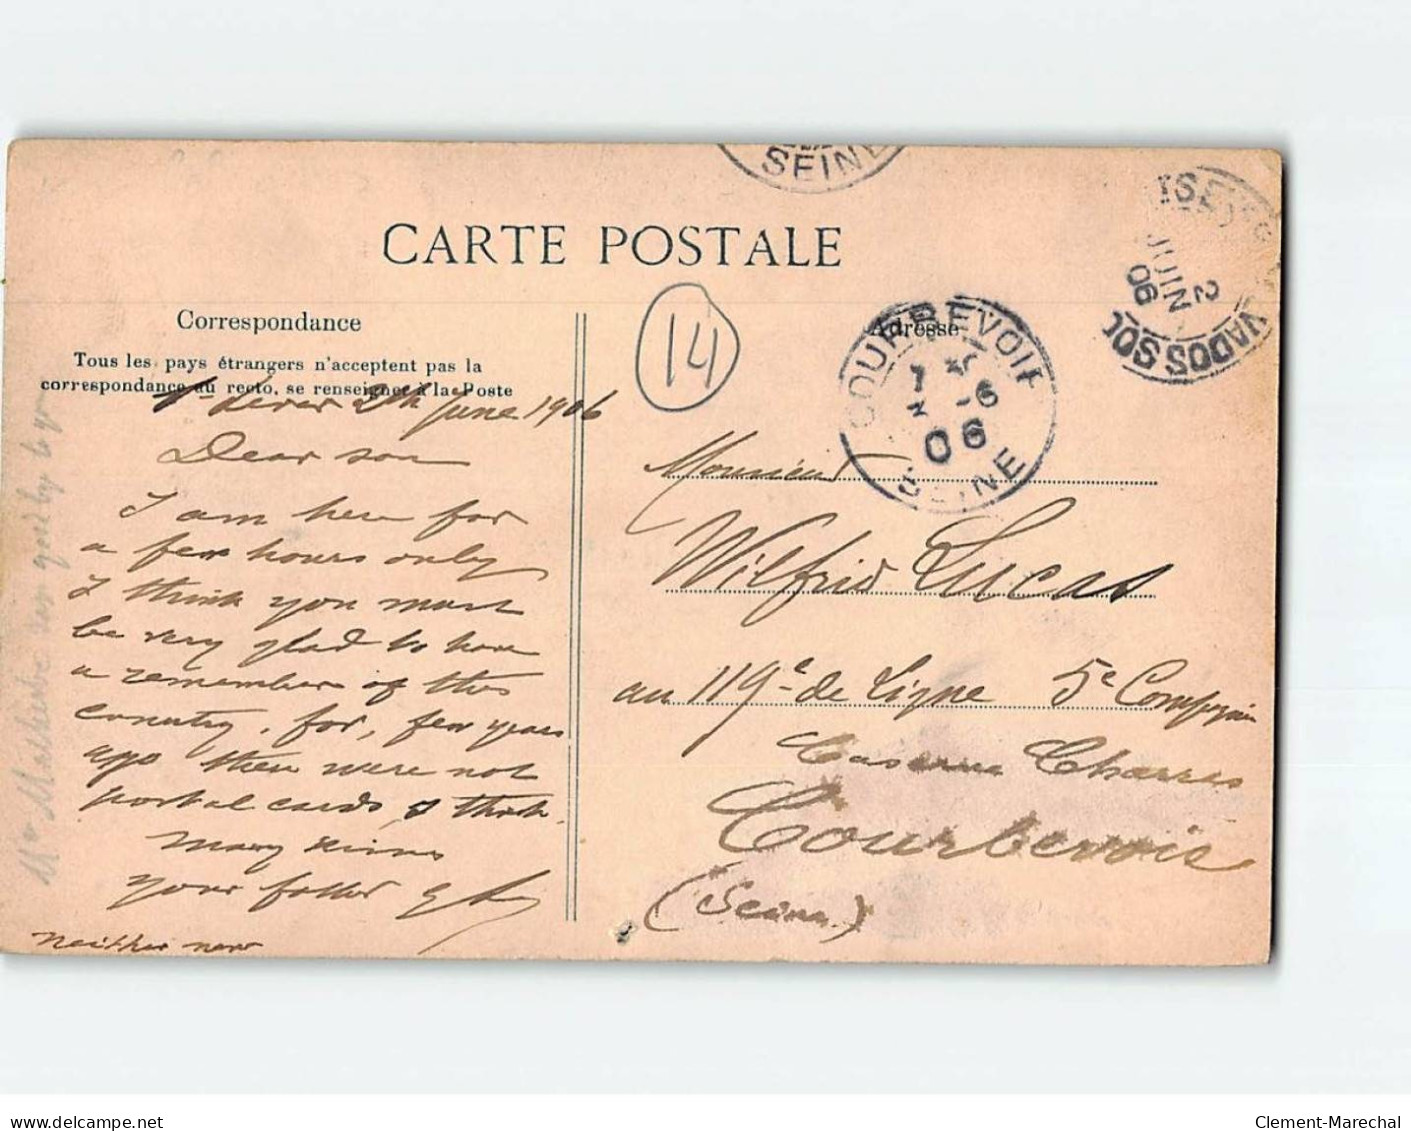 SEINE
CARTE POSTALE
Correspondance
Adresse
Tous les pays étrangers n'acceptent pas la
correspondance au recto, se renseigner à la Poste
14
COURBEVOIE
7
-6
06
SEINE
2
JUIN
06
VADOS
2th June 1906
Dear son
I am here for
a few hours only
I think you must
be very glad to have
a remember of this
country, for, few years
ago there were not
postal cards, I think.
many kisses
your father
neither now
Monsieur
Wilfrid Lucas
au 119e de Ligne 5e Compagnie
Caserne Charras
Courbevoie
(Seine)
good by to you
Clement-Marechal